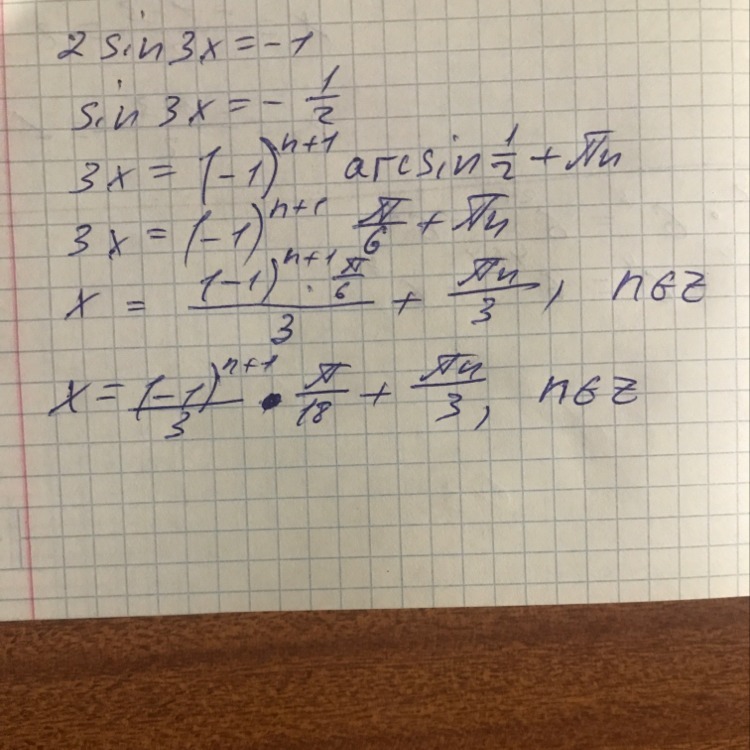 2 sin 3x = -1
sin 3x = - 1/2
3x = (-1)^(n+1) arcsin 1/2 + πn
3x = (-1)^(n+1) π/6 + πn
x = ((-1)^(n+1) · π/6)/3 + πn/3, n∈z
x = (-1)^(n+1)/3 · π/18 + πn/3, n∈z